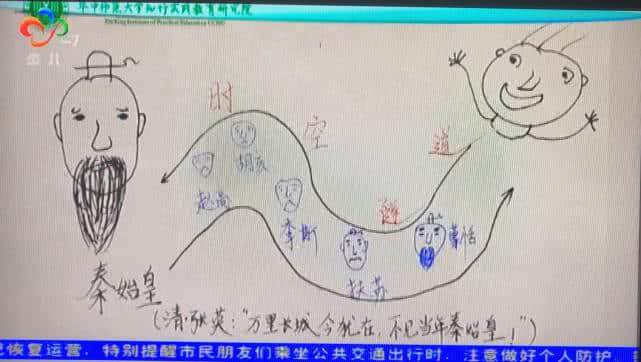 华中师范大学知行实践教育研究院
少儿
时
空
隧
道
胡亥
赵高
李斯
扶苏
蒙恬
秦始皇
(清·张英:“万里长城今犹在,不见当年秦始皇!”)
已恢复运营,特别提醒市民朋友们乘坐公共交通出行时,注意做好个人防护